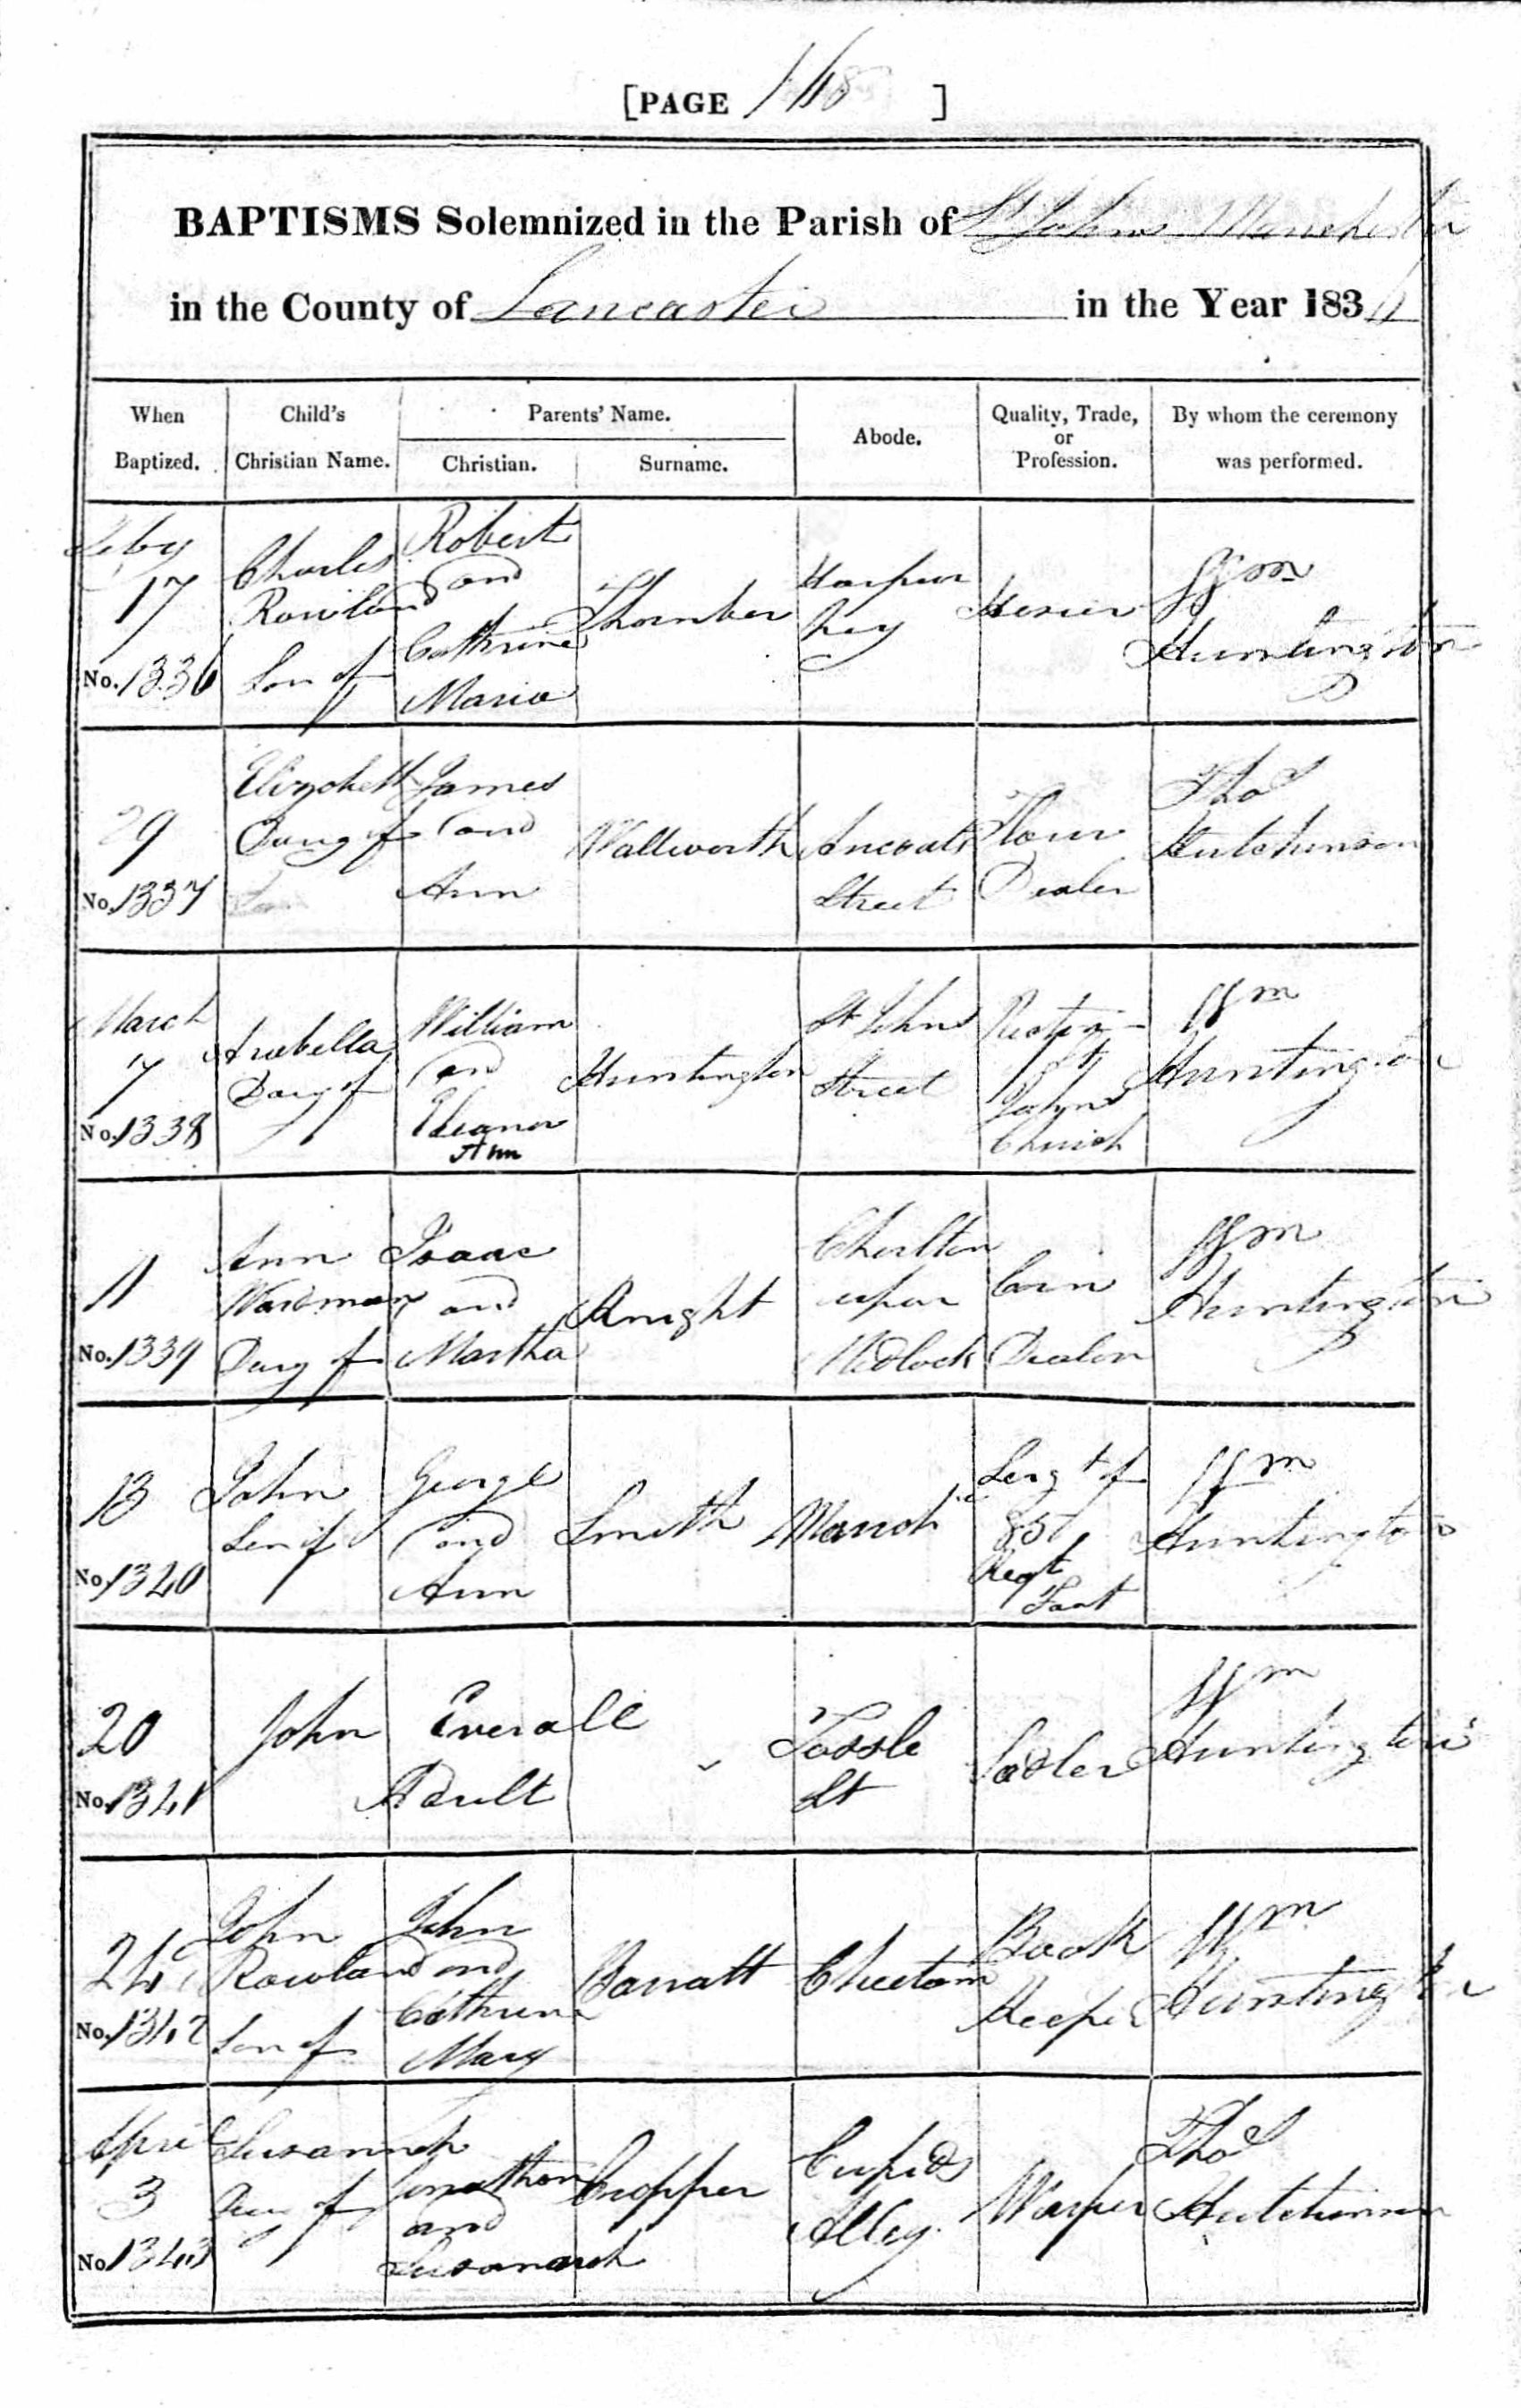 [PAGE 168 ]
BAPTISMS Solemnized in the Parish of St Johns Manchester
in the County of Lancaster in the Year 183
When Baptized.
Child's Christian Name.
Parents' Name.
Christian.
Surname.
Abode.
Quality, Trade, or Profession.
By whom the ceremony was performed.
Feby
17
No. 1336
Charles
Rowland
Son of
Robert
and
Cathrine
Maria
Thornber
Harpur
hey
Wm
Huntington
29
No. 1337
Elizabeth
Daug of
James
and
Ann
Wallworth
Ancoats
Street
Flour
Dealer
Thos
Hutchinson
March
7
No. 1338
Arabella
Daug of
William
and
Eleanor
Ann
Huntington
St Johns
Street
Rector
St
Johns
Church
Wm
Huntington
11
No. 1339
Ann
Wardman
Daug of
Isaac
and
Martha
Knight
Chorlton
upon
Medlock
Corn
Dealer
Wm
Huntington
13
No. 1340
John
Son of
George
and
Ann
Smith
Manch
Sergt of
85
Regt
Foot
Wm
Huntington
20
No. 1341
John Everall
Adult
St
Sadler
Wm
Huntington
24
No. 1342
John
Rowland
Son of
John
and
Cathrine
Mary
Barratt
Cheetam
Book
Keeper
Wm
Huntington
April
3
No. 1343
Susannah
Dau of
Jonathan
and
Susannah
Cropper
Cupids
Alley
Warper
Thos
Hutchinson